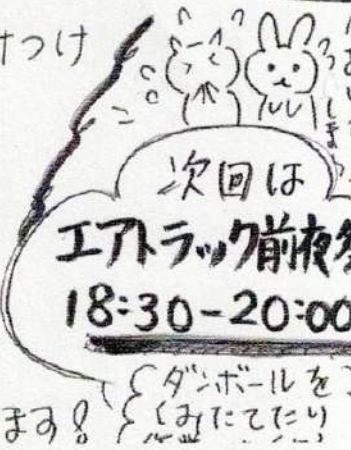 けつけ
おい
します
次回は
エアトラック前夜
18:30-20:00
ダンボールを
くみたてたり
ます!